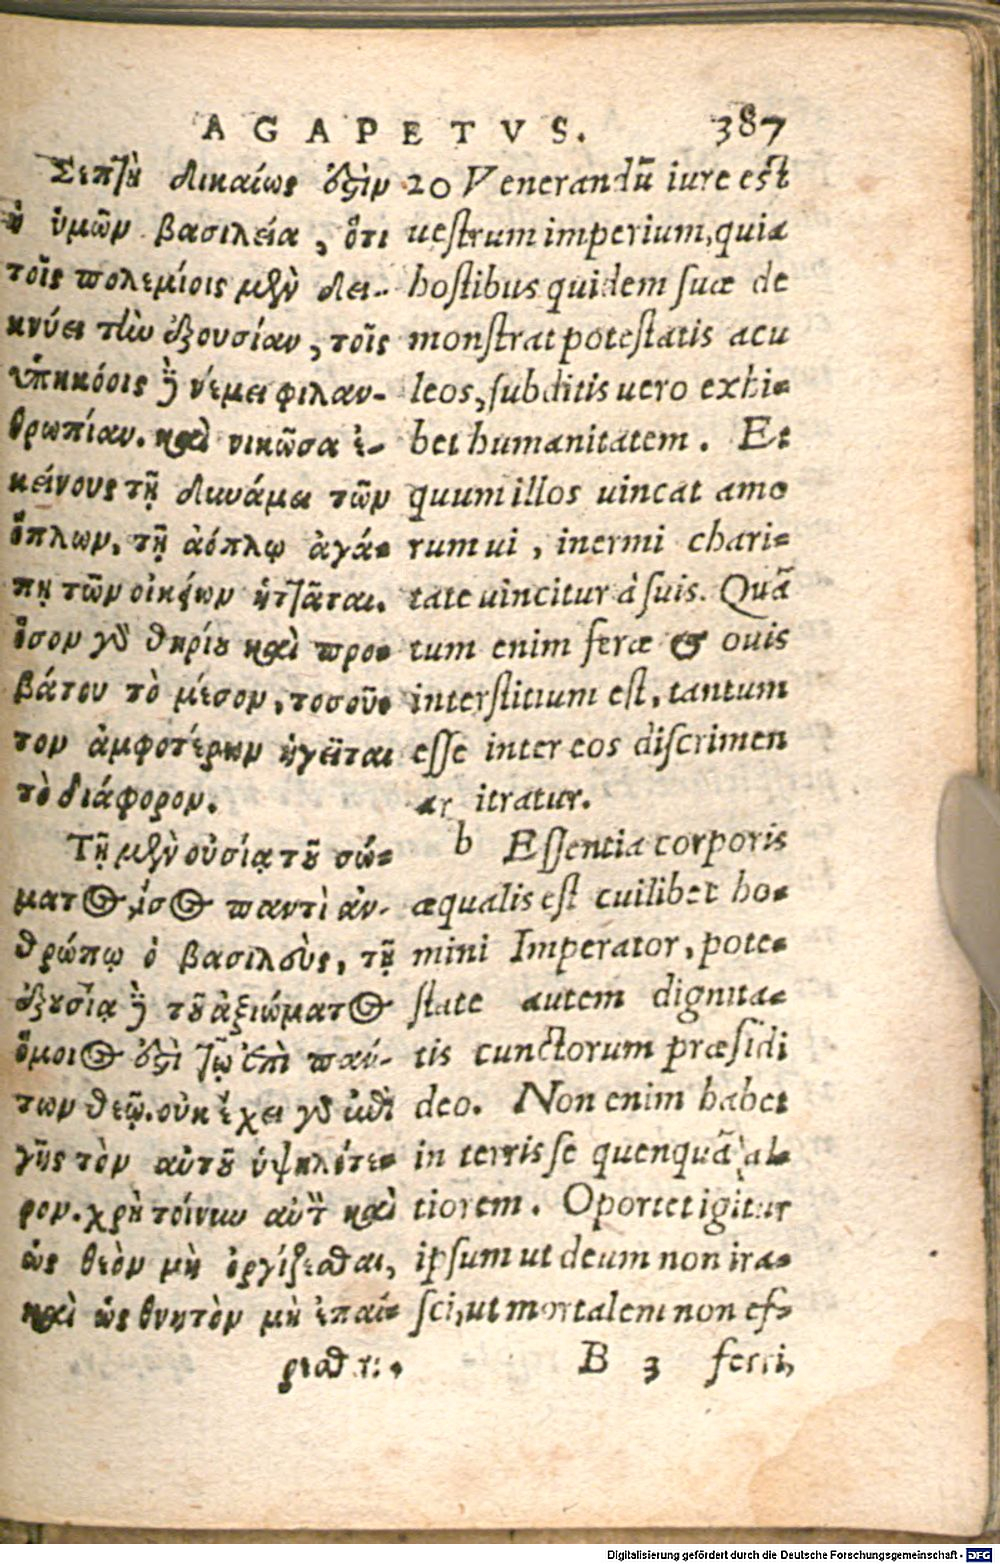 AGAPETVS. 387
Σεπτὴ δικαίως ἐστὶν
ἡ ὑμῶν βασιλεία, ὅτι
τοῖς πολεμίοις μὲν δει-
κνύει τὴν ἐξουσίαν, τοῖς
ὑπηκόοις δὲ νέμει φιλαν-
θρωπίαν. καὶ νικῶσα ἐ-
κείνους τῇ δυνάμει τῶν
ὅπλων, τῇ ἀόπλῳ ἀγά-
πῃ τῶν οἰκείων ἡττᾶται.
ὅσον γὰρ θηρίου καὶ προ-
βάτου τὸ μέσον, τοσοῦ-
τον ἀμφοτέρων ἡγεῖται
τὸ διάφορον.
Τῇ μὲν οὐσίᾳ τοῦ σώ-
ματος, ἴσος παντὶ ἀν-
θρώπῳ ὁ βασιλεὺς, τῇ
ἐξουσίᾳ δὲ τοῦ ἀξιώματος
ὅμοιός ἐστι τῷ ἐπὶ πάν-
των θεῷ. οὐκ ἔχει γὰρ ἐπὶ
γῆς τὸν αὐτοῦ ὑψηλότε-
ρον. χρὴ τοίνυν αὐτὸν καὶ
ὡς θεὸν μὴ ὀργίζεσθαι,
καὶ ὡς θνητὸν μὴ ἐπαί-
ρεσθαι.
20 Venerandũ iure est
uestrum imperium, quia
hostibus quidem suæ de
monstrat potestatis acu
leos, subditis uero exhi-
bet humanitatem. Et
quum illos uincat armo
rum ui, inermi chari-
tate uincitur à suis. Quã
tum enim feræ & ouis
interstitium est, tantum
esse inter eos discrimen
ar itratur.
b Essentia corporis
æqualis est cuilibet ho-
mini Imperator, pote-
state autem dignita-
tis cunctorum præsidi
deo. Non enim habet
in terris se quenquã al-
tiorem. Oportet igitur
ipsum ut deum non ira-
sci, ut mortalem non ef-
B 3 ferri,
Digitalisierung gefördert durch die Deutsche Forschungsgemeinschaft - DFG